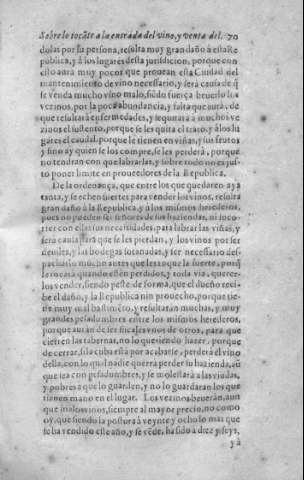 Sobre lo tocãte a la entrada del vino, y venta del. 70
dolas por su persona, resulta muy gran daño a esta Re
publica, y á los lugares desta jurisdicion, porque con
esto aurá muy pocos que prouean esta Ciudad del
mantenimiento de vino necessario, y será causa de q̃
se venda mucho vino malo, siẽdo fuerça beuerlo los
vezinos, por la poca abundancia, y falta que aurá, de
que resultará enfermedades, y se quitará a muchos ve
zinos el sustento, porque se les quita el trato, y à los lu
gares el caudal, porque le tienen en viñas, y sus frutos
y sino ay quien se los compre, se les perderá, porque
no tendran con que labrarlas, y sobre todo no es jus-
to poner limite en proueedores de la Republica.
De la ordenança, que entre los que quedaren aya
tanta, y se echen suertes para vender los vinos, resulta
gran daño à la Republica, y a los mismos herederos,
pues no pueden ser señores de sus haziendas, ni soco-
rrer con ellas sus necessidades, para labrar las viñas, y
será causa para que se les pierdan, y los vinos por ser
debiles, y las bodegas
pacharlo no, no antes que les toque la suerte, porq̃
le tocará quando estén perdidos, y toda via, querer-
los vender, siendo peste de forma, que el dueño reci-
be el daño, y la Republica sin prouecho, porque tie-
ne muy mal bastimẽto, y resultarán muchas, y muy
grandes pesadumbres entre los mismos herederos,
porque aurán de ser fiscales vnos de otros, para que
cierren las tabernas, no lo queriendo hazer, porque
de cerrar, si la cuba està por acabarse, perderá el vino
della, con lo qual nadie querra perder su hazienda, aũ
que sea con pesadumbres, y se molestará a las viudas,
y pobres a que lo guarden, y no lo guardaran los que
tienen mano en el lugar. Los vezinos beuerán, aun
que malos vinos, siempre al mayor precio, no como
oy, que siendo la postura à veynte y ocho lo mas que
se ha vendido este año, y se vẽde, ha sido à diez y seys,
y à